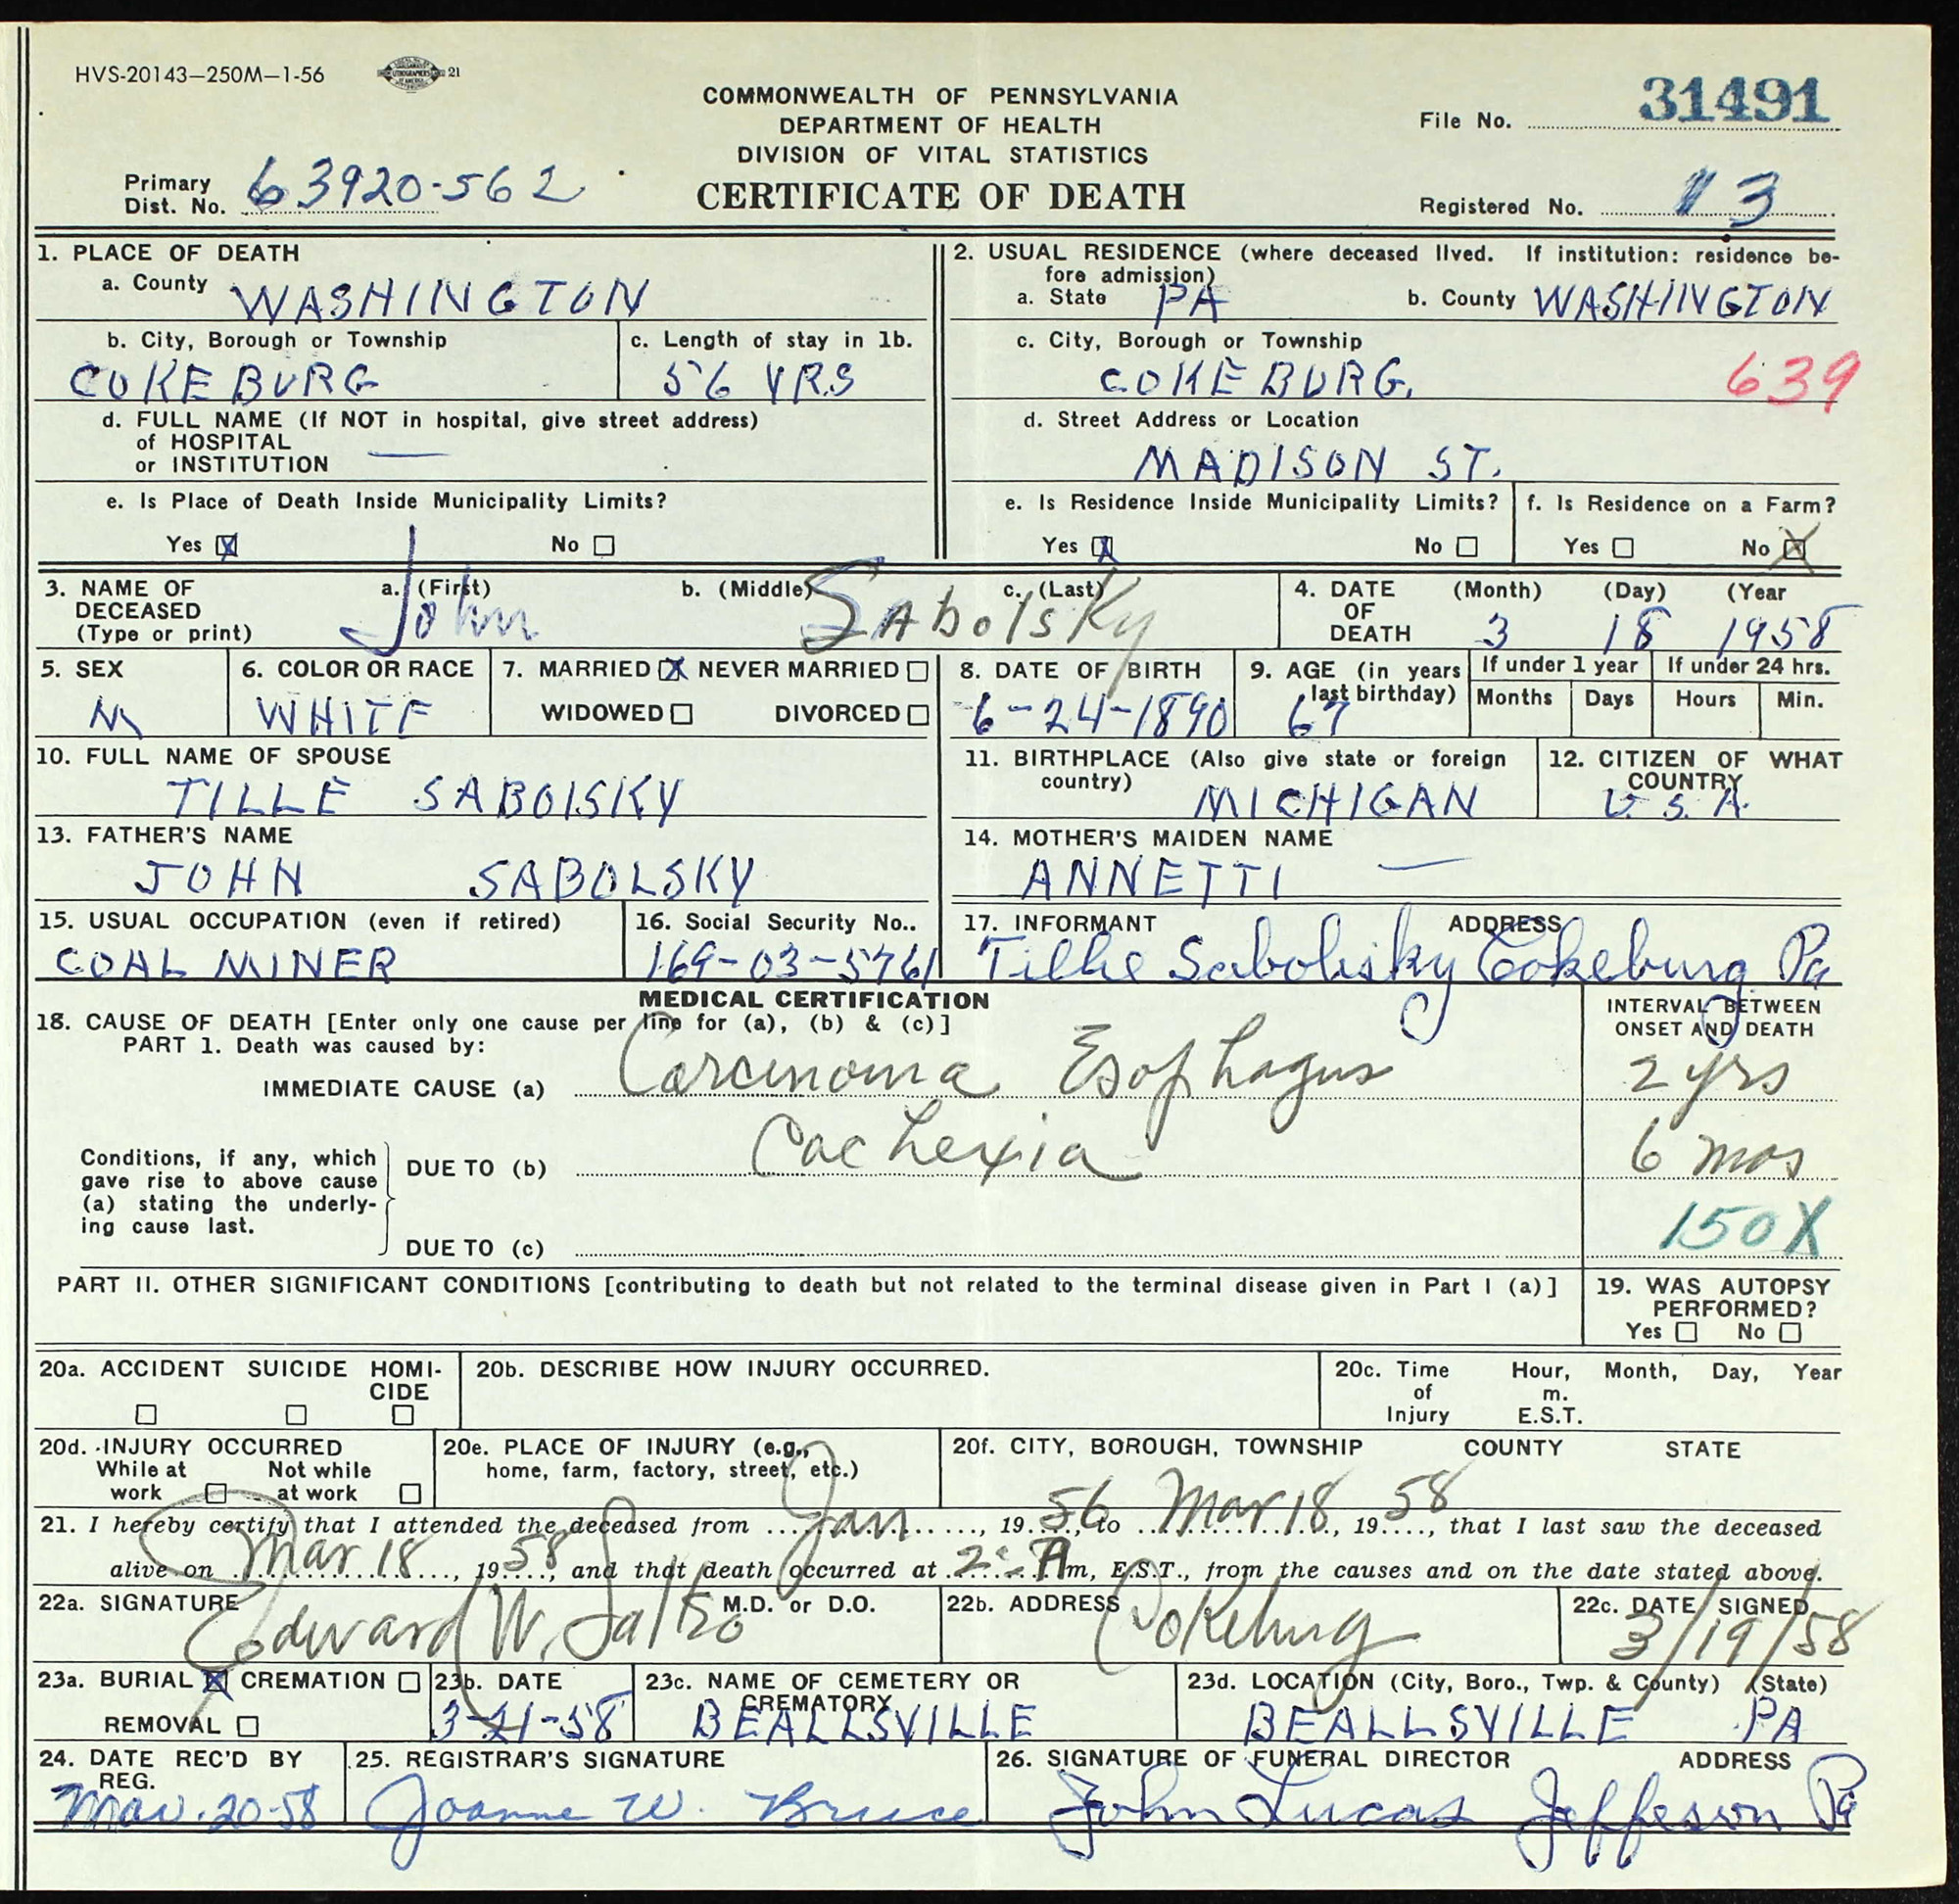 HVS-20143—250M—1-56 21
COMMONWEALTH OF PENNSYLVANIA
DEPARTMENT OF HEALTH
DIVISION OF VITAL STATISTICS
CERTIFICATE OF DEATH
File No. 31491
Primary
Dist. No. 63920-562
Registered No. 13
1. PLACE OF DEATH
a. County WASHINGTON
b. City, Borough or Township
COKEBURG
c. Length of stay in 1b.
56 YRS
d. FULL NAME (If NOT in hospital, give street address)
of HOSPITAL
or INSTITUTION —
e. Is Place of Death Inside Municipality Limits?
Yes ☒ No ☐
2. USUAL RESIDENCE (where deceased lived. If institution: residence be-
fore admission)
a. State PA b. County WASHINGTON
c. City, Borough or Township
COKEBURG. 639
d. Street Address or Location
MADISON ST.
e. Is Residence Inside Municipality Limits?
Yes ☒ No ☐
f. Is Residence on a Farm?
Yes ☐ No ☒
3. NAME OF
DECEASED
(Type or print)
a. (First) b. (Middle) c. (Last)
John Sabolsky
4. DATE
OF
DEATH
(Month) (Day) (Year
3 18 1958
5. SEX
M
6. COLOR OR RACE
WHITE
7. MARRIED ☒ NEVER MARRIED ☐
WIDOWED ☐ DIVORCED ☐
8. DATE OF BIRTH
6-24-1890
9. AGE (in years
last birthday)
67
If under 1 year
Months Days
If under 24 hrs.
Hours Min.
10. FULL NAME OF SPOUSE
TILLE SABOLSKY
11. BIRTHPLACE (Also give state or foreign
country)
MICHIGAN
12. CITIZEN OF WHAT
COUNTRY
U.S.A.
13. FATHER'S NAME
JOHN SABOLSKY
14. MOTHER'S MAIDEN NAME
ANNETTI —
15. USUAL OCCUPATION (even if retired)
COAL MINER
16. Social Security No..
169-03-5761
17. INFORMANT ADDRESS
Tillie Sabolisky Cokeburg Pa
MEDICAL CERTIFICATION
18. CAUSE OF DEATH [Enter only one cause per line for (a), (b) & (c)]
PART 1. Death was caused by:
INTERVAL BETWEEN
ONSET AND DEATH
IMMEDIATE CAUSE (a) Carcinoma Esophagus 2 yrs
Conditions, if any, which
gave rise to above cause
(a) stating the underly-
ing cause last.
DUE TO (b) Cachexia 6 mos
DUE TO (c) 150X
PART II. OTHER SIGNIFICANT CONDITIONS [contributing to death but not related to the terminal disease given in Part I (a)]
19. WAS AUTOPSY
PERFORMED?
Yes ☐ No ☐
20a. ACCIDENT SUICIDE HOMI-
CIDE
☐ ☐ ☐
20b. DESCRIBE HOW INJURY OCCURRED.
20c. Time
of
Injury
Hour, Month, Day, Year
m.
E.S.T.
20d. INJURY OCCURRED
While at Not while
work ☐ at work ☐
20e. PLACE OF INJURY (e.g.,
home, farm, factory, street, etc.)
20f. CITY, BOROUGH, TOWNSHIP COUNTY STATE
21. I hereby certify that I attended the deceased from Jan, 1956, to Mar 18, 1958, that I last saw the deceased
alive on Mar 18, 1958, and that death occurred at 2:- Am, E.S.T., from the causes and on the date stated above.
22a. SIGNATURE M.D. or D.O.
Edward W.
22b. ADDRESS
Cokeburg
22c. DATE SIGNED
3/19/58
23a. BURIAL ☒ CREMATION ☐
REMOVAL ☐
23b. DATE
3-21-58
23c. NAME OF CEMETERY OR
CREMATORY
BEALLSVILLE
23d. LOCATION (City, Boro., Twp. & County) (State)
BEALLSVILLE PA
24. DATE REC'D BY
REG.
Mar. 20-58
25. REGISTRAR'S SIGNATURE
Joanne W. Bruce
26. SIGNATURE OF FUNERAL DIRECTOR ADDRESS
John Lucas Jeffeson Pa